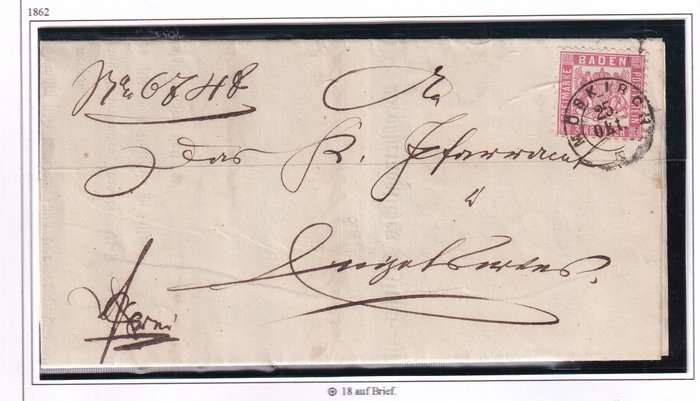 1862
No 6748
An
BADEN
FREIMARKE
POSTVEREIN
MÖSKIRCH
25
Okt.
das K. Pfarramt
Engelswies.
⊙ 18 auf Brief.